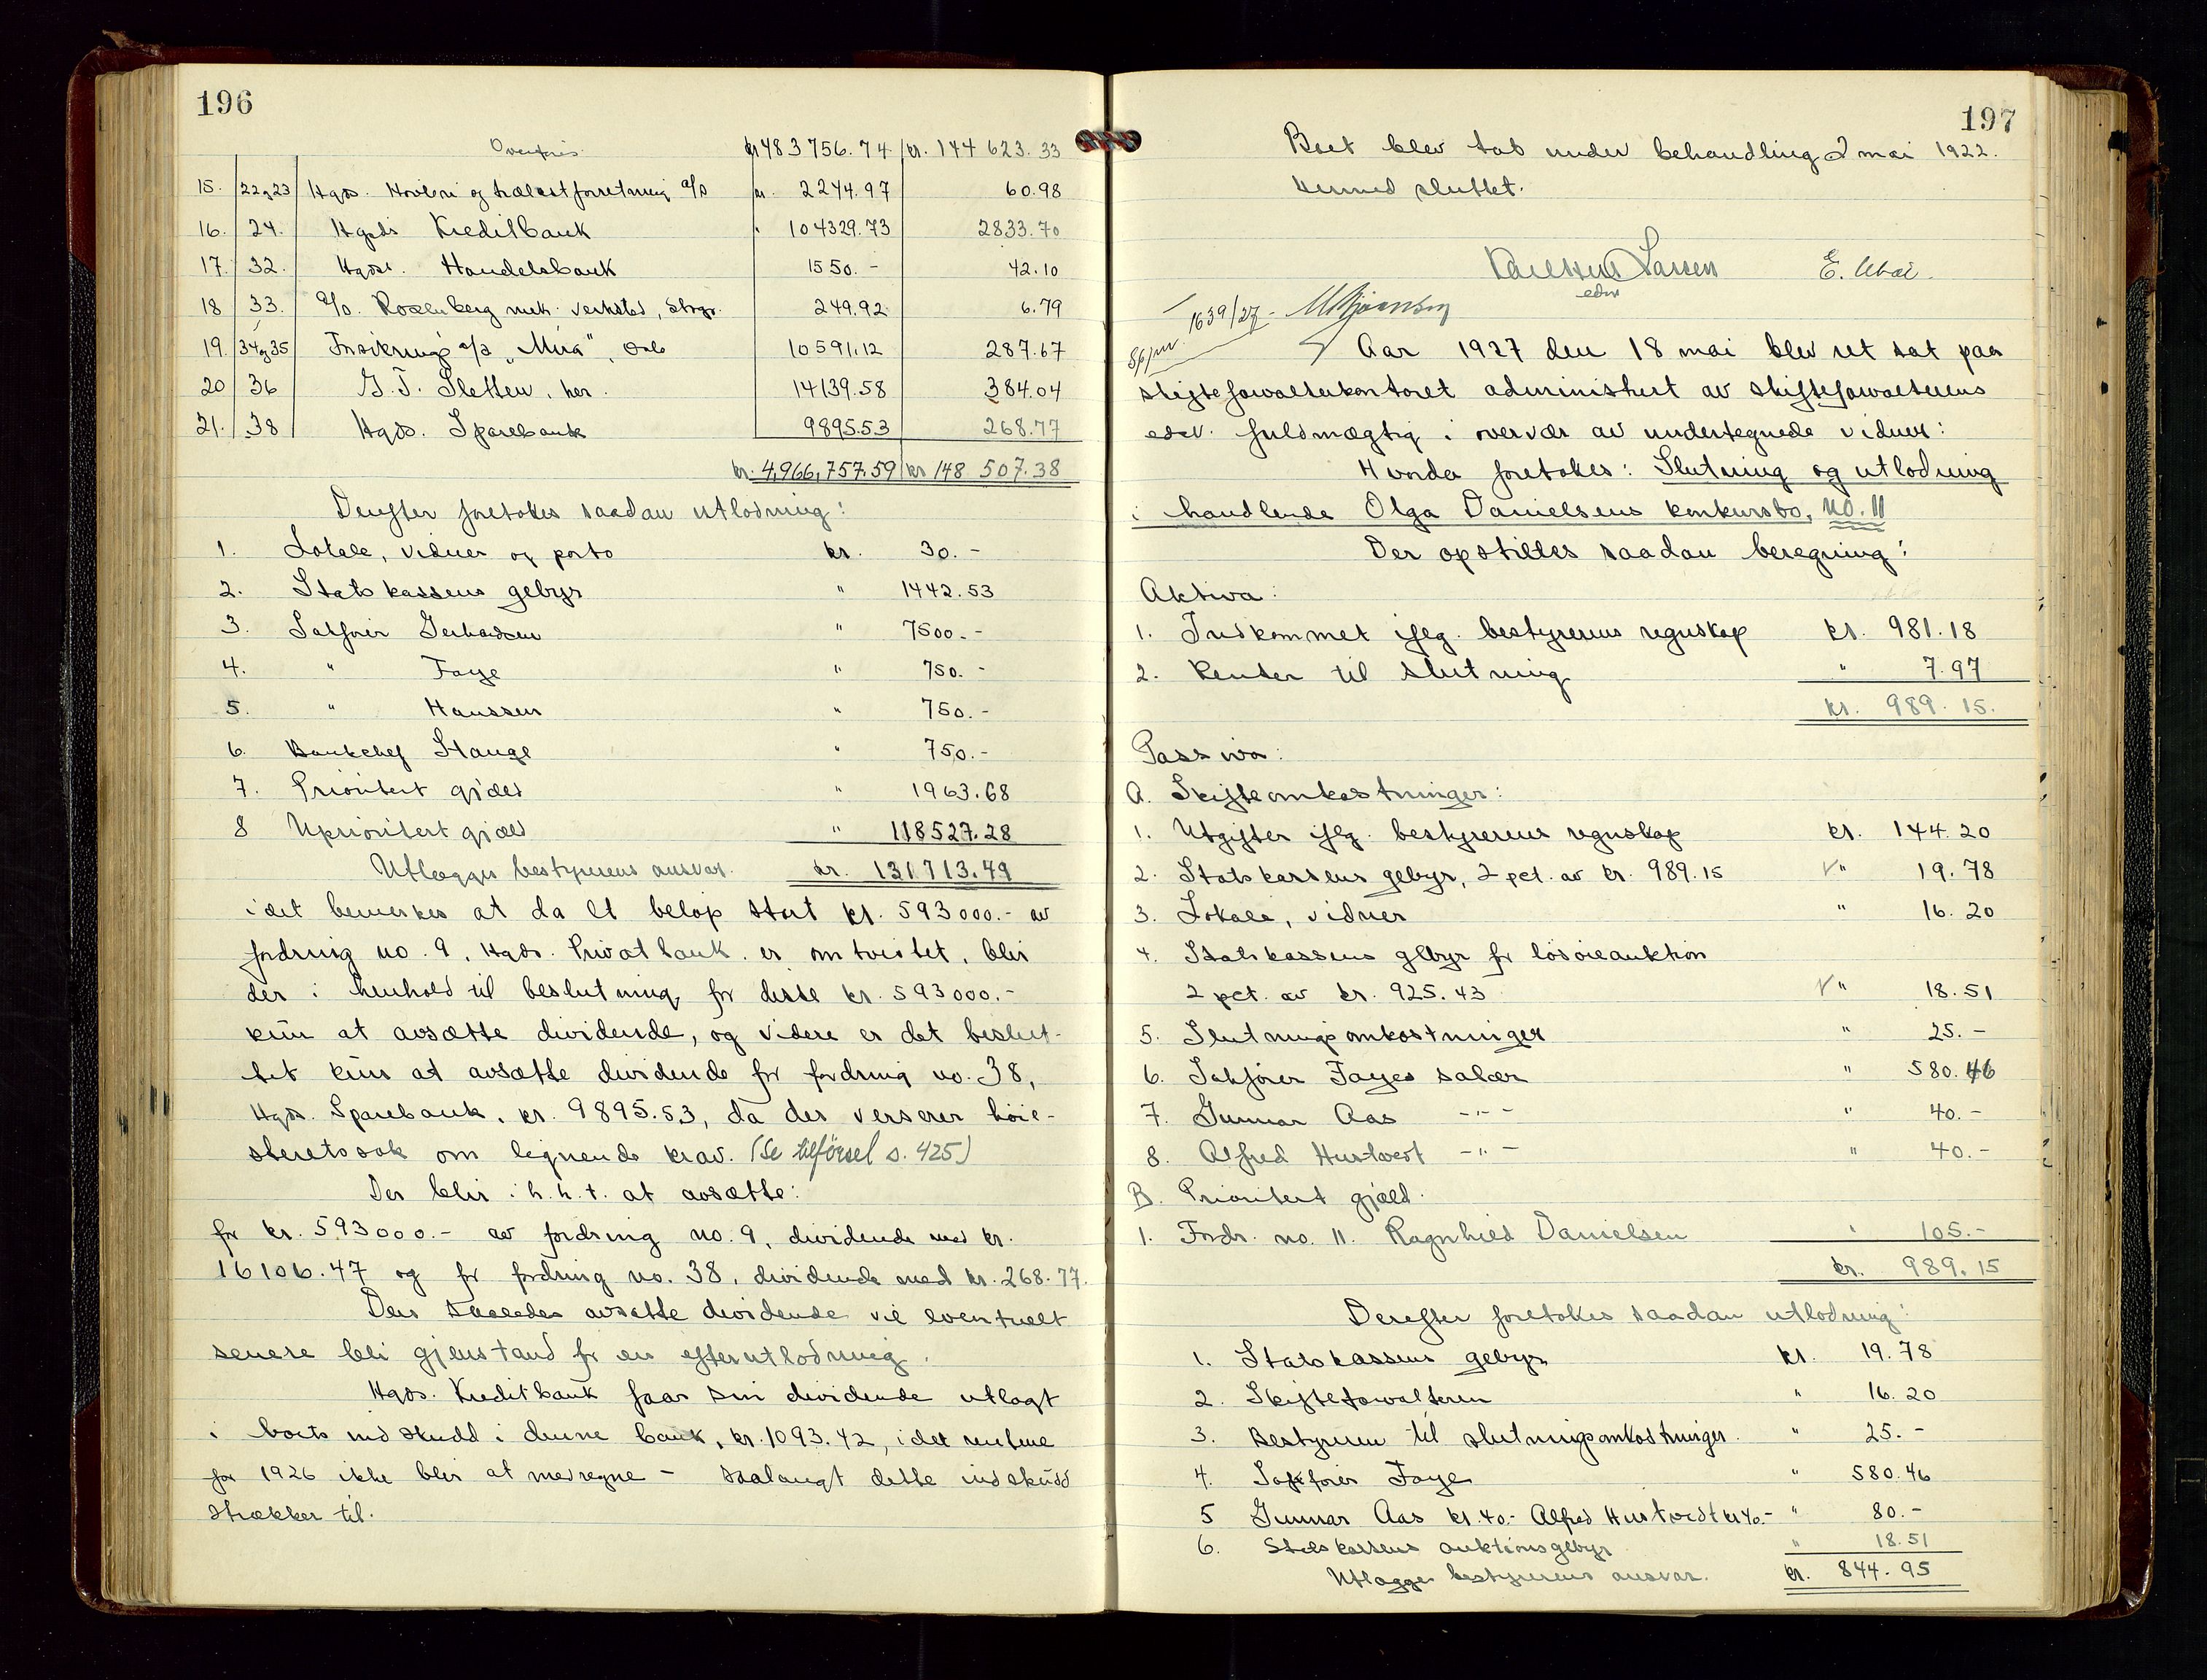 196
Overføres kr 483756.74 kr. 144623.33
15. 22og23 Hgds. Hovleri og trælastforretning a/s kr. 2244.97 60.98
16. 24. Hgsds Kreditbank " 104329.73 2833.70
17. 32. Hgds. Handelsbank 1550.- 42.10
18 33. A/S. Rosenberg mek. verksted, Stvgr. 249.92 6.79
19. 34og35 Forsikrings a/s "Mira", Oslo 10591.12 287.67
20 36 G. T. Sletten, her. 14139.58 384.04
21. 38 Hgds. Sparebank 9895.53 268.77
kr. 4,966,757.59 kr 148 507.38
Derefter foretokes saadan utlodning:
1. Lokale, vidner og porto kr. 30.-
2. Statskassens gebyr " 1442.53
3. Sakfører Gerhardsen " 7500.-
4. " Faye " 750.-
5. " Hanssen " 750.-
6. Bankchef Stange " 750.-
7. Prioritert gjæld " 1963.68
8 Uprioritert gjæld " 118527.28
Utlægges bestyrerens ansvar. kr. 131713.49
idet bemerkes at da et beløp stort kr. 593000.- av
fordring no. 9, Hgds. Privatbank. er omtvistet, blir
der i henhold til beslutning for disse kr. 593000.-
kun at avsætte dividende, og videre er det beslut-
tet kun at avsætte dividende for fordring no. 38,
Hgds. Sparebank, kr. 9895.53, da der verserer høie-
steretssak om lignende krav. (Se tilförsel s. 425)
Der blir i h. h. t. at avsætte:
for kr. 593000.- av fordring no. 9, dividende med kr.
16106.47 og for fordring no. 38, dividende med kr. 268.77.
Den saaledes avsatte dividende vil eventuelt
senere bli gjenstand for en efterutlodning.
Hgds. Kreditbank faar sin dividende utlagt
i boets indskudd i denne bank, kr. 1093.42, idet rentene
for 1926 ikke blir at medregne - saalangt dette indskudd
strækker til.
197
Boet blev tat under behandling 2 mai 1922.
Hermed sluttet.
Larsen
edsv
1639/27
Aar 1927 den 18 mai blev ret sat paa
skiftefovalterkontoret administrert av skiftefovalterens
edsv. fuldmægtig i overvær av undertegnede vidner:
Hvorda foretokes: Slutning og utlodning
i handlende Olga Danielsens konkursbo, no. 11
Der opstilles saadan beregning:
Aktiva:
1. Indkommet ifølg. bestyrerens regnskap kr. 981.18
2. Renter til slutning " 7.97
kr. 989.15.
Passiva:
A. Skifteomkostninger:
1. Utgifter iflg. bestyrerens regnskap kr. 144.20
2. Statskassens gebyr, 2 pct. av kr. 989.15 " 19.78
3. Lokale, vidner " 16.20
4. Statskassens gebyr for løsøreauktion
2 pct. av kr. 925.43 " 18.51
5. Slutningsomkostninger " 25.-
6. Sakfører Fayes salær " 580.46
7. Gunnar Aas -"- " 40.-
8. Alfred Hustvedt -"- " 40.-
B. Prioritert gjæld.
1. Fordr. no. 11. Ragnhild Danielsen " 105.-
kr. 989.15
Derefter foretokes saadan utlodning:
1. Statskassens gebyr kr. 19.78
2. Skiftefovalteren " 16.20
3. Bestyreren til slutningsomkostninger. " 25.-
4. Sakfører Faye " 580.46
5 Gunnar Aas kr. 40.- Alfred Hustvedt kr 40.- " 80.-
6. Statskassens auktionsgebyr " 18.51
Utlægges bestyrerens ansvar. kr. 844.95